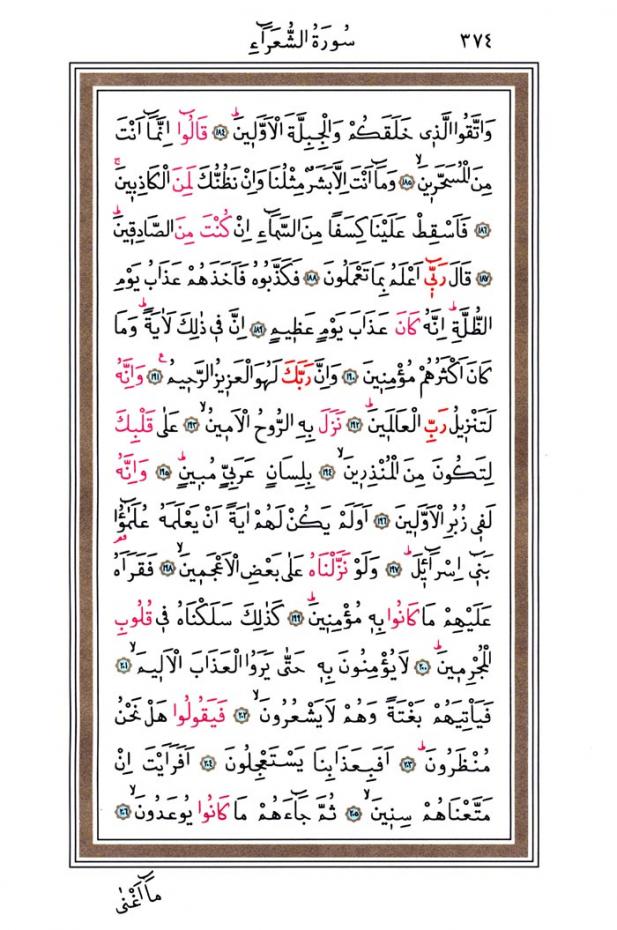 سُورَةُ الشُّعَرَٓاءِ ٣٧٤
وَاتَّقُوا الَّذ۪ي خَلَقَكُمْ وَالْجِبِلَّةَ الْاَوَّل۪ينَۜ ﴿١٨٤﴾ قَالُٓوا اِنَّمَٓا اَنْتَ
مِنَ الْمُسَحَّر۪ينَۙ ﴿١٨٥﴾ وَمَٓا اَنْتَ اِلَّا بَشَرٌ مِثْلُنَا وَاِنْ نَظُنُّكَ لَمِنَ الْكَاذِب۪ينَۚ
﴿١٨٦﴾ فَاَسْقِطْ عَلَيْنَا كِسَفًا مِنَ السَّمَٓاءِ اِنْ كُنْتَ مِنَ الصَّادِق۪ينَۜ
﴿١٨٧﴾ قَالَ رَبّ۪ٓي اَعْلَمُ بِمَا تَعْمَلُونَ ﴿١٨٨﴾ فَكَذَّبُوهُ فَاَخَذَهُمْ عَذَابُ يَوْمِ
الظُّلَّةِۜ اِنَّهُ كَانَ عَذَابَ يَوْمٍ عَظ۪يمٍ ﴿١٨٩﴾ اِنَّ ف۪ي ذٰلِكَ لَاٰيَةًۜ وَمَا
كَانَ اَكْثَرُهُمْ مُؤْمِن۪ينَ ﴿١٩٠﴾ وَاِنَّ رَبَّكَ لَهُوَ الْعَز۪يزُ الرَّح۪يمُ۟ ﴿١٩١﴾ وَاِنَّهُ
لَتَنْز۪يلُ رَبِّ الْعَالَم۪ينَۜ ﴿١٩٢﴾ نَزَلَ بِهِ الرُّوحُ الْاَم۪ينُۙ ﴿١٩٣﴾ عَلٰى قَلْبِكَ
لِتَكُونَ مِنَ الْمُنْذِر۪ينَۙ ﴿١٩٤﴾ بِلِسَانٍ عَرَبِيٍّ مُب۪ينٍۜ ﴿١٩٥﴾ وَاِنَّهُ
لَف۪ي زُبُرِ الْاَوَّل۪ينَ ﴿١٩٦﴾ اَوَلَمْ يَكُنْ لَهُمْ اٰيَةً اَنْ يَعْلَمَهُ عُلَمٰٓؤُ۬ا
بَن۪ٓي اِسْرَٓائ۪لَۜ ﴿١٩٧﴾ وَلَوْ نَزَّلْنَاهُ عَلٰى بَعْضِ الْاَعْجَم۪ينَۙ ﴿١٩٨﴾ فَقَرَاَهُ
عَلَيْهِمْ مَا كَانُوا بِه۪ مُؤْمِن۪ينَۜ ﴿١٩٩﴾ كَذٰلِكَ سَلَكْنَاهُ ف۪ي قُلُوبِ
الْمُجْرِم۪ينَۜ ﴿٢٠٠﴾ لَا يُؤْمِنُونَ بِه۪ حَتّٰى يَرَوُا الْعَذَابَ الْاَل۪يمَۙ ﴿٢٠١﴾
فَيَاْتِيَهُمْ بَغْتَةً وَهُمْ لَا يَشْعُرُونَۙ ﴿٢٠٢﴾ فَيَقُولُوا هَلْ نَحْنُ
مُنْظَرُونَۜ ﴿٢٠٣﴾ اَفَبِعَذَابِنَا يَسْتَعْجِلُونَ ﴿٢٠٤﴾ اَفَرَاَيْتَ اِنْ
مَتَّعْنَاهُمْ سِن۪ينَۙ ﴿٢٠٥﴾ ثُمَّ جَٓاءَهُمْ مَا كَانُوا يُوعَدُونَۙ ﴿٢٠٦﴾
مَٓا اَغْنٰى